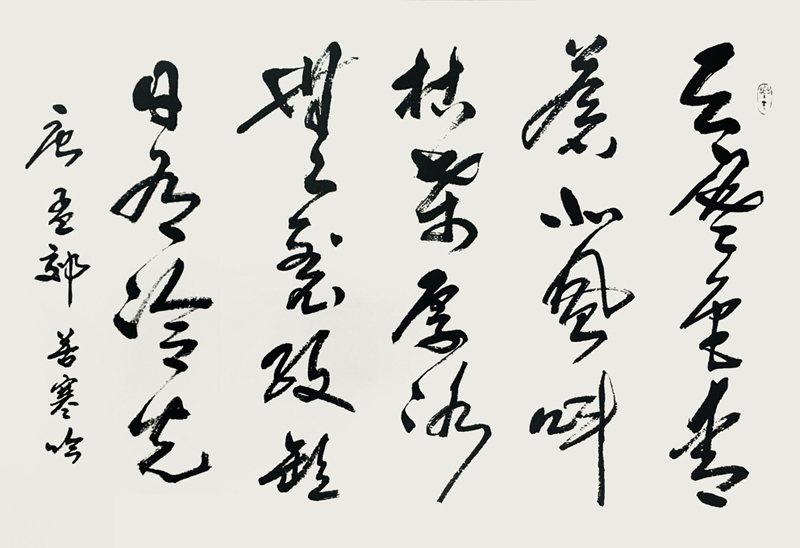 天寒色青
蒼北風叫
枯桑厚冰
無裂紋短
日有冷光
唐孟郊 苦寒吟